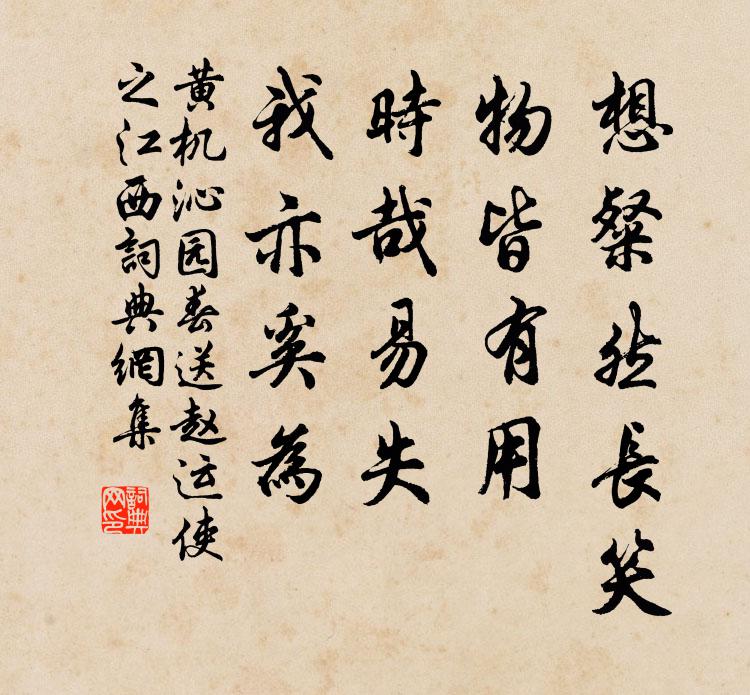 想粲然长笑
物皆有用
時哉易失
我亦奚為
黄机沁园春送赵运使
之江西詞典網集
詞典
网印